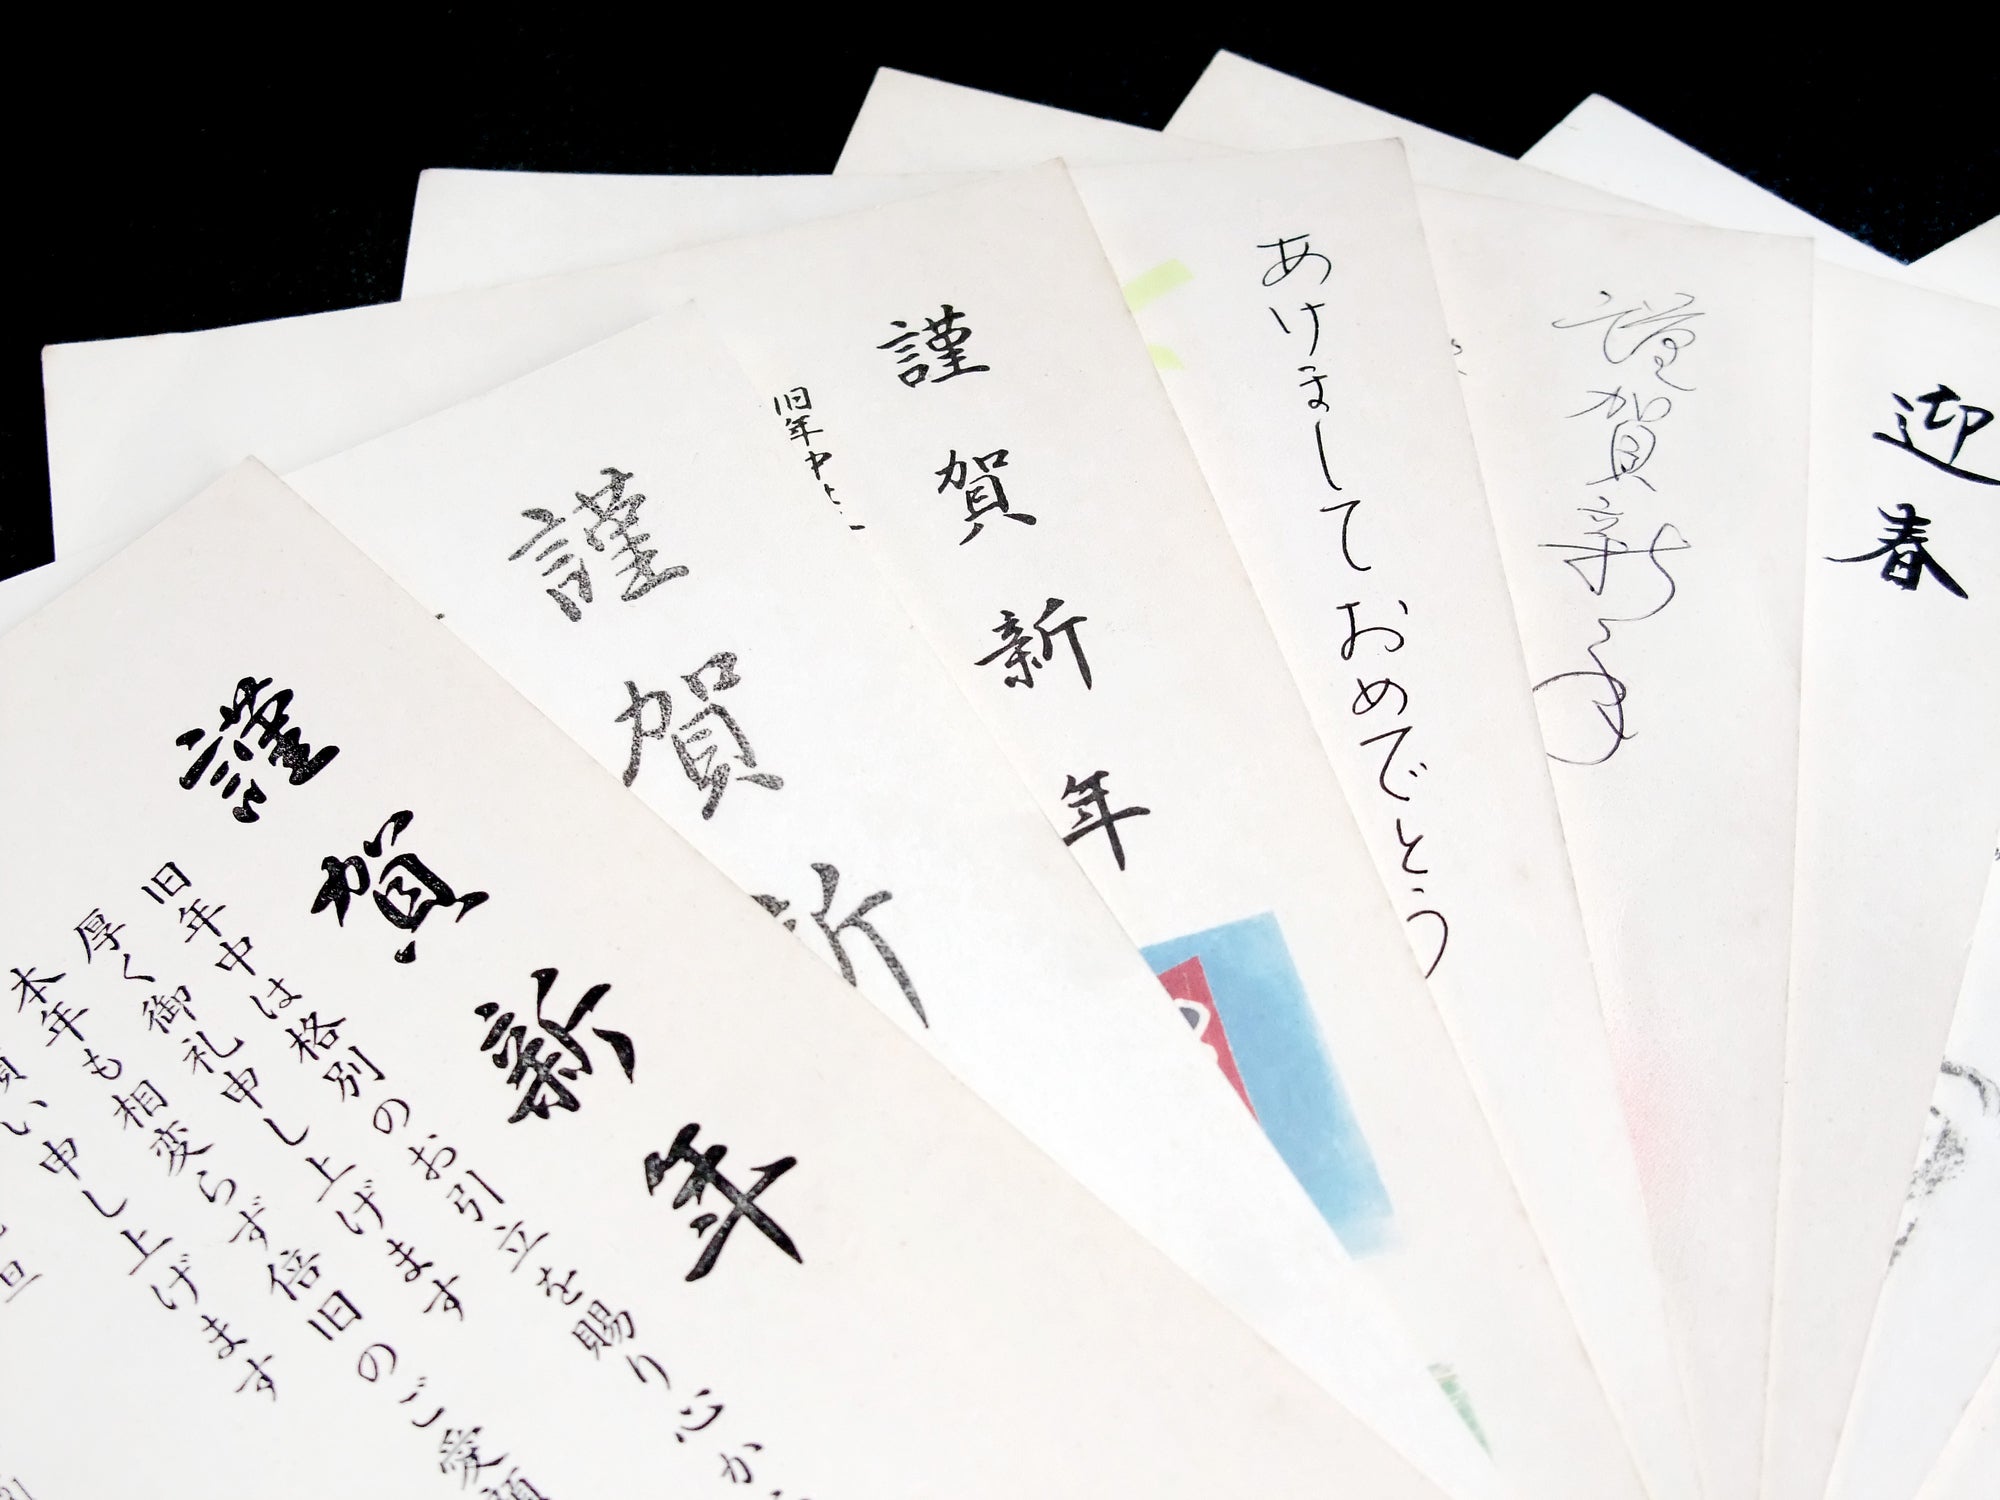 謹賀新年
旧年中は格別のお引立を賜り心か
厚く御礼申し上げます
本年も相変らず倍旧のご愛顧
い申し上げます
旦
謹賀新
謹賀新年
旧年中は
あけましておめでとう
謹賀新年
迎春